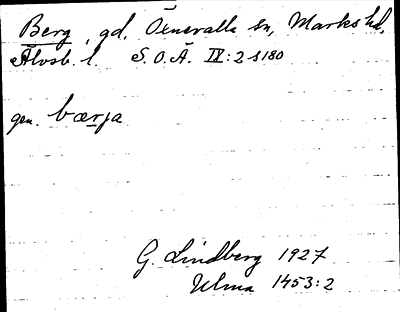 Berg, gd, Öxnevalla sn, Marks hd,
Älvsb. l. S.O.Ä. IX:2 s 180
gm. bærja
G. Lindberg 1927
Ulma 1453:2